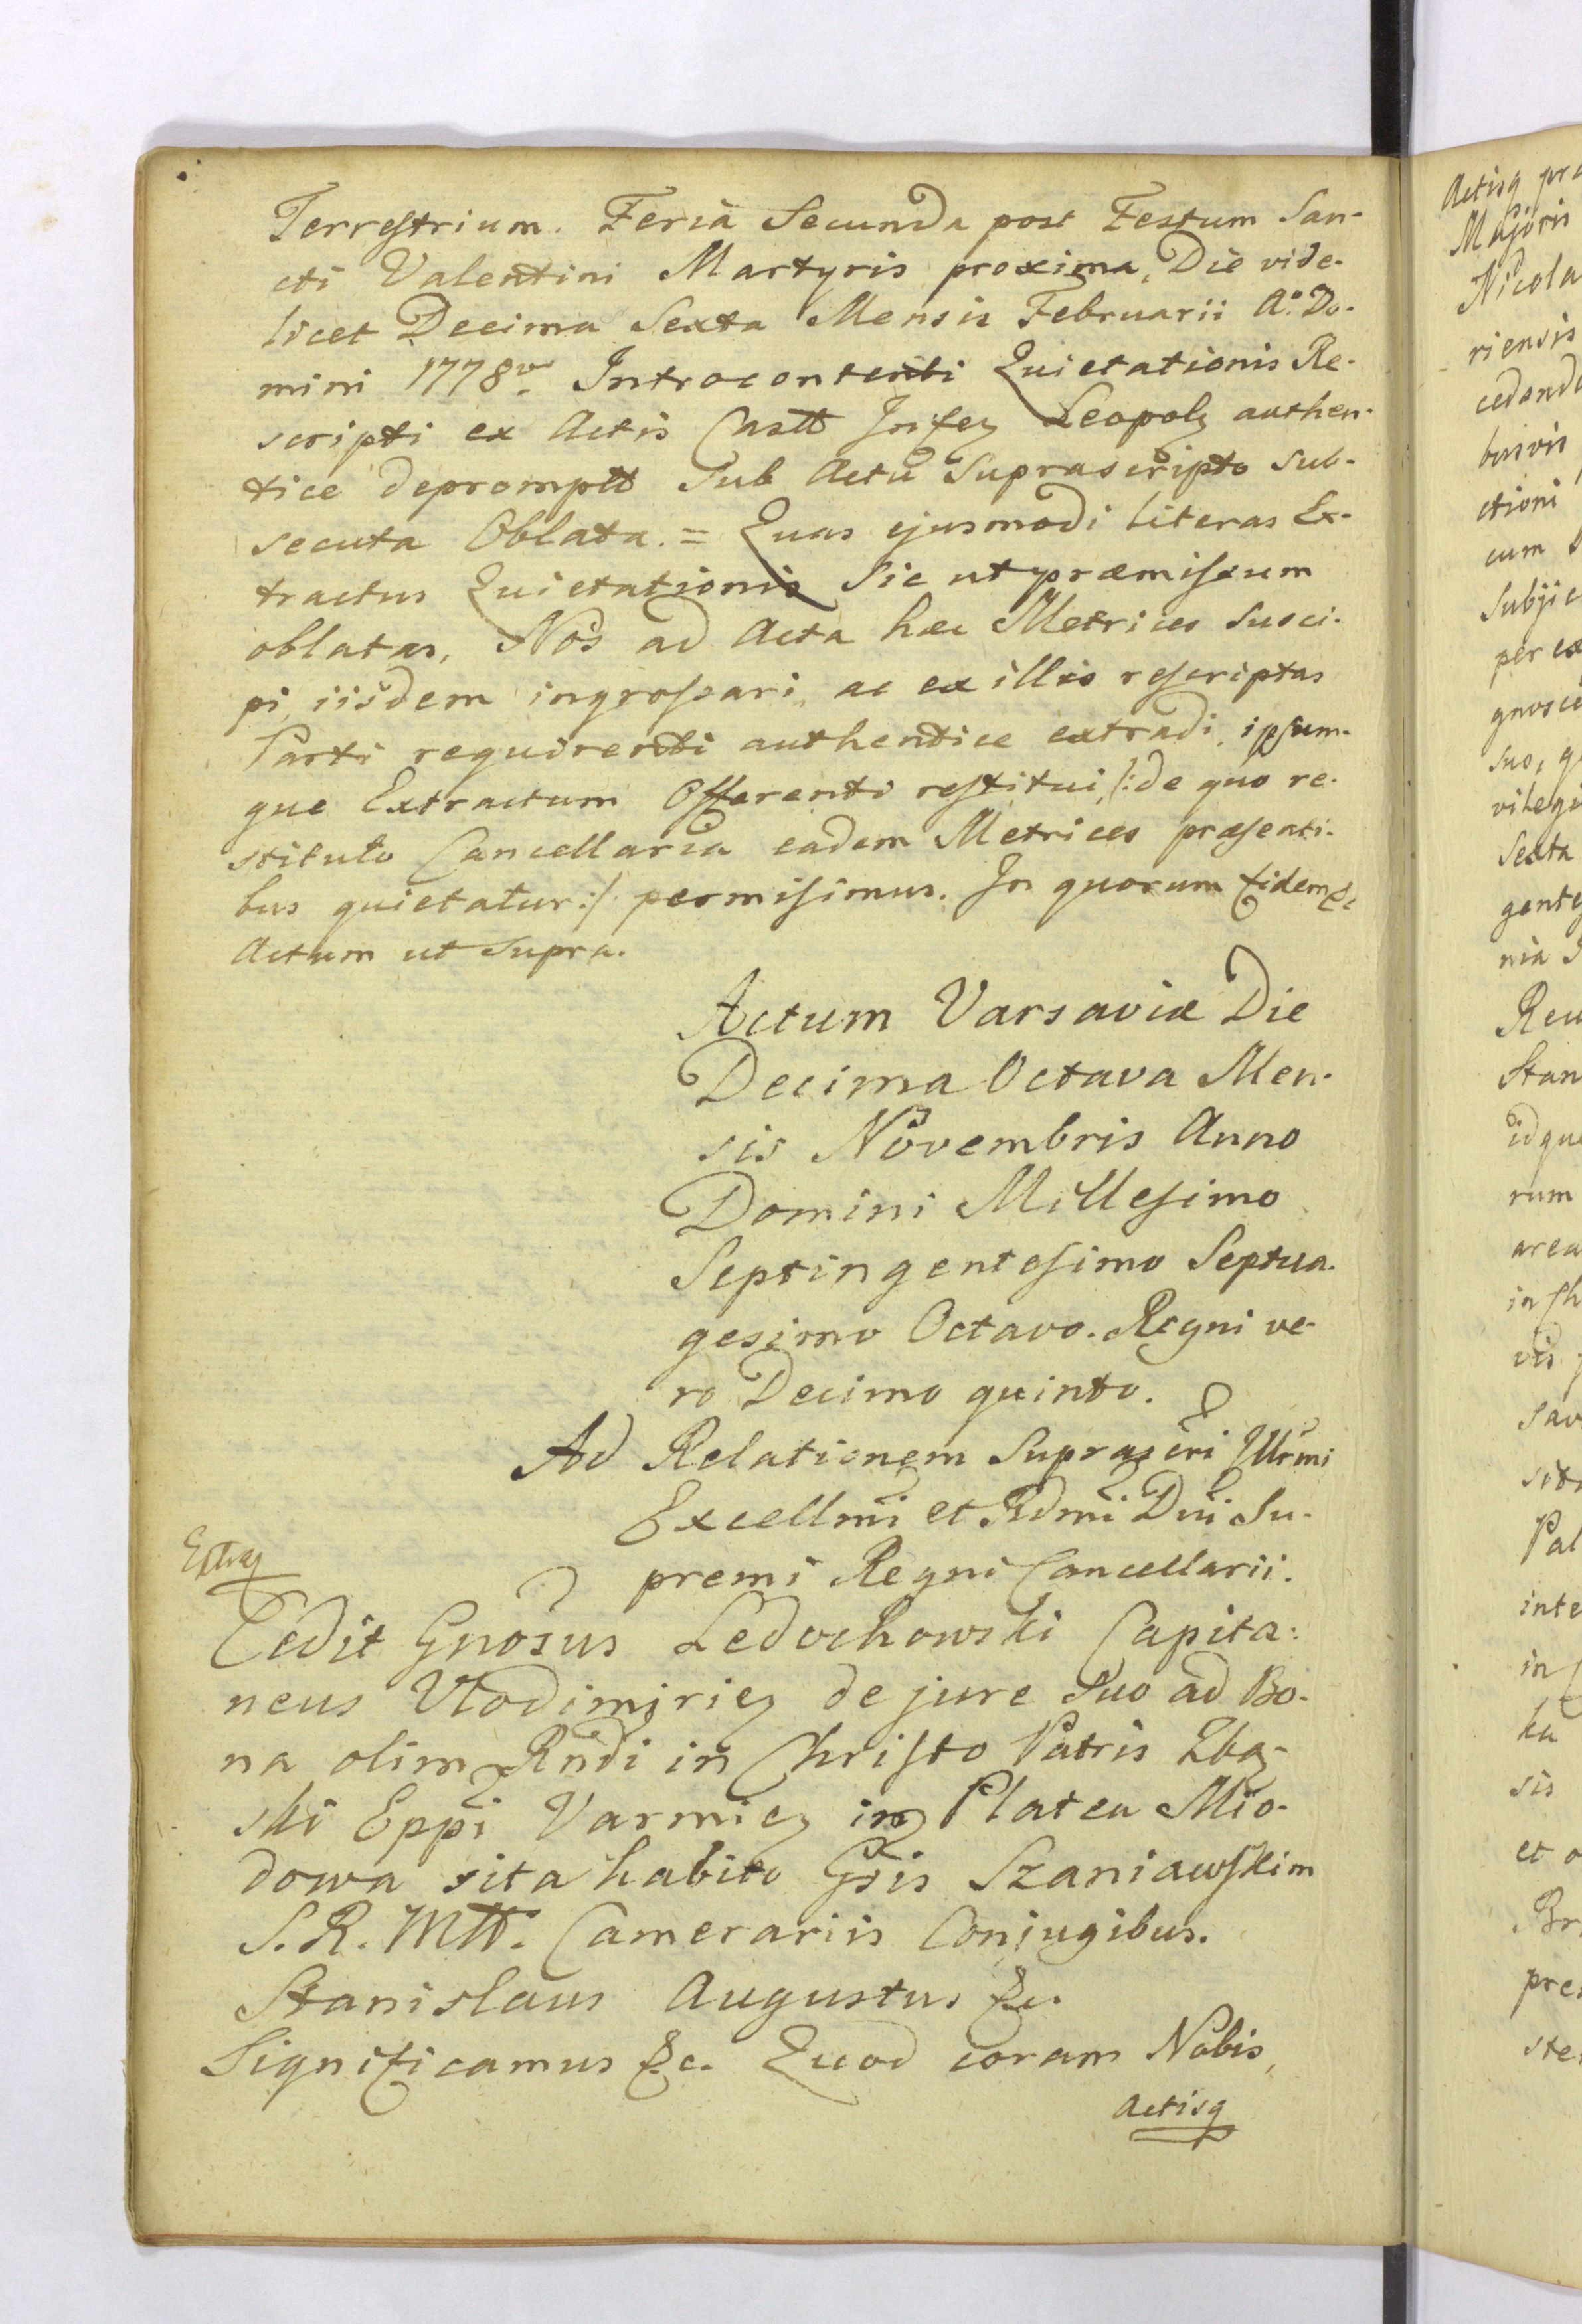 Terrestrium. Feria Secunda post Festum San-
cti Valentini Martyris proxima, Die vide-
licet Decima Sexta Mensis Februarii Aº. Do-
mini 1778vo. Introcontenti Quietationis Re-
scripti ex Actis Castt Infez Leopolz authen-
tice depromptt Sub Actu Suprascripto sub-
secuta Oblata. = Quas ejusmodi literas Ex-
tractus Quietationis Sic ut præmissum
oblatas, Nos ad Acta hæc Metrices susci-
pi, iisdem ingrossari, ac ex illis rescriptas
Parti requirenti authentice extradi, ipsum-
que Extractum Offerenti restitui, /: de quo re-
stituto Cancellaria eadem Metrices præsenti-
bus quietatur :/ permisimus. In quorum fidem &c
Actum ut supra.
Actum Varsaviæ Die
Decima Octava Men-
sis Novembris Anno
Domini Millesimo
Septingentesimo Septua-
gesimo Octavo. Regni ve-
ro Decimo quinto.
Ad Relationem Suprascri Illrmi
Excellmi et Rdmi Dni Su-
premi Regni Cancellarii.
Cedit Gnosus Ledochowski Capita:
neus Vlodimiriez de jure Suo ad Bo-
na olim Rndi in Christo Patris Zbą-
ski Eppi Varmiez in Platea Mio-
dowa sita habito Gsis Szaniawskim
S. R. Mtt. Camerariis Conjugibus.
Stanislaus Augustus &c.
Significamus &c. Quod coram Nobis,
Actisq
Actisq
Majoris
Nicola
riensis
ctioni
cum
per ex
suo,
Sexta
nia
Stan
rum
in
sis
et